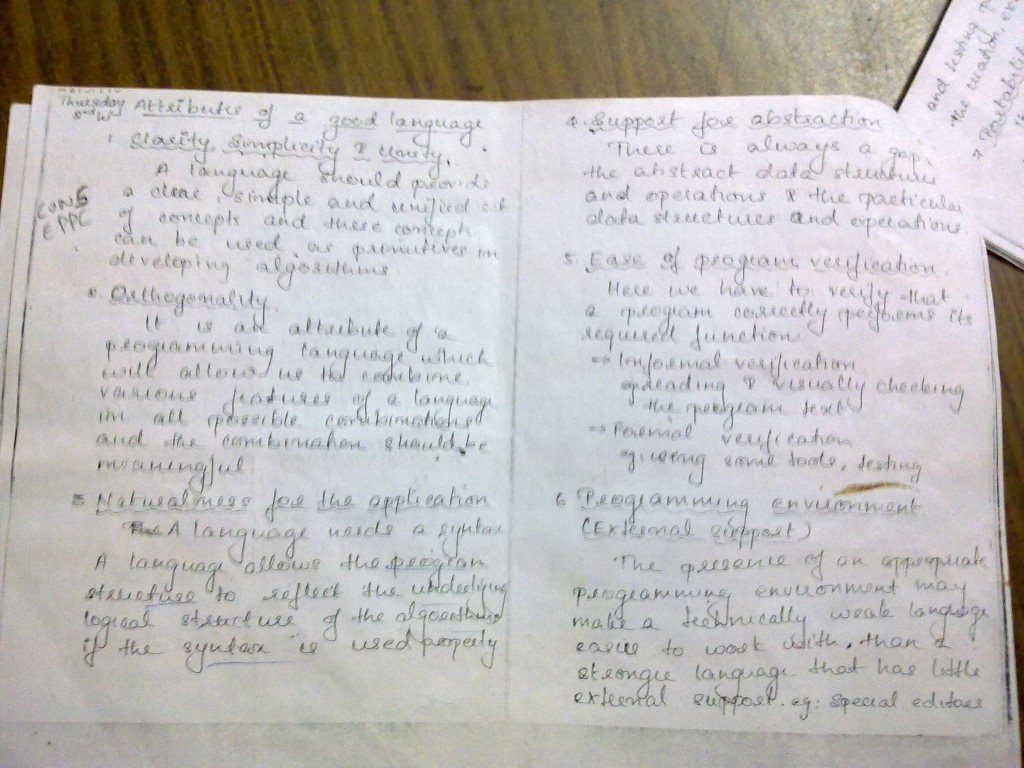 Thursday
Attributes of a good language
1. Clarity, Simplicity & Unity.
A language should provide
a clear, simple and unified set
of concepts and these concepts
can be used as primitives in
developing algorithms
CONS
EPPC
2. Orthogonality.
It is an attribute of a
programming language which
will allow us to combine
various features of a language
in all possible combinations
and the combination should be
meaningful
3 Naturalness for the application
A language needs a syntax
A language allows the program
structure to reflect the underlying
logical structure of the algorithms
if the syntax is used properly
4. Support for abstraction
There is always a gap,
the abstract data structures
and operations & the particular
data structures and operations.
5. Ease of program verification
Here we have to verify that
a program correctly performs its
required function
⇒ Informal verification
eg: reading & visually checking
the program text
⇒ Formal verification
eg: using some tools, testing
6 Programming environment
(External support)
The presence of an appropriate
programming environment may
make a technically weak language
easier to work with, than a
stronger language that has little
external support. eg: special editors
and testing
the creation,
7 Portability